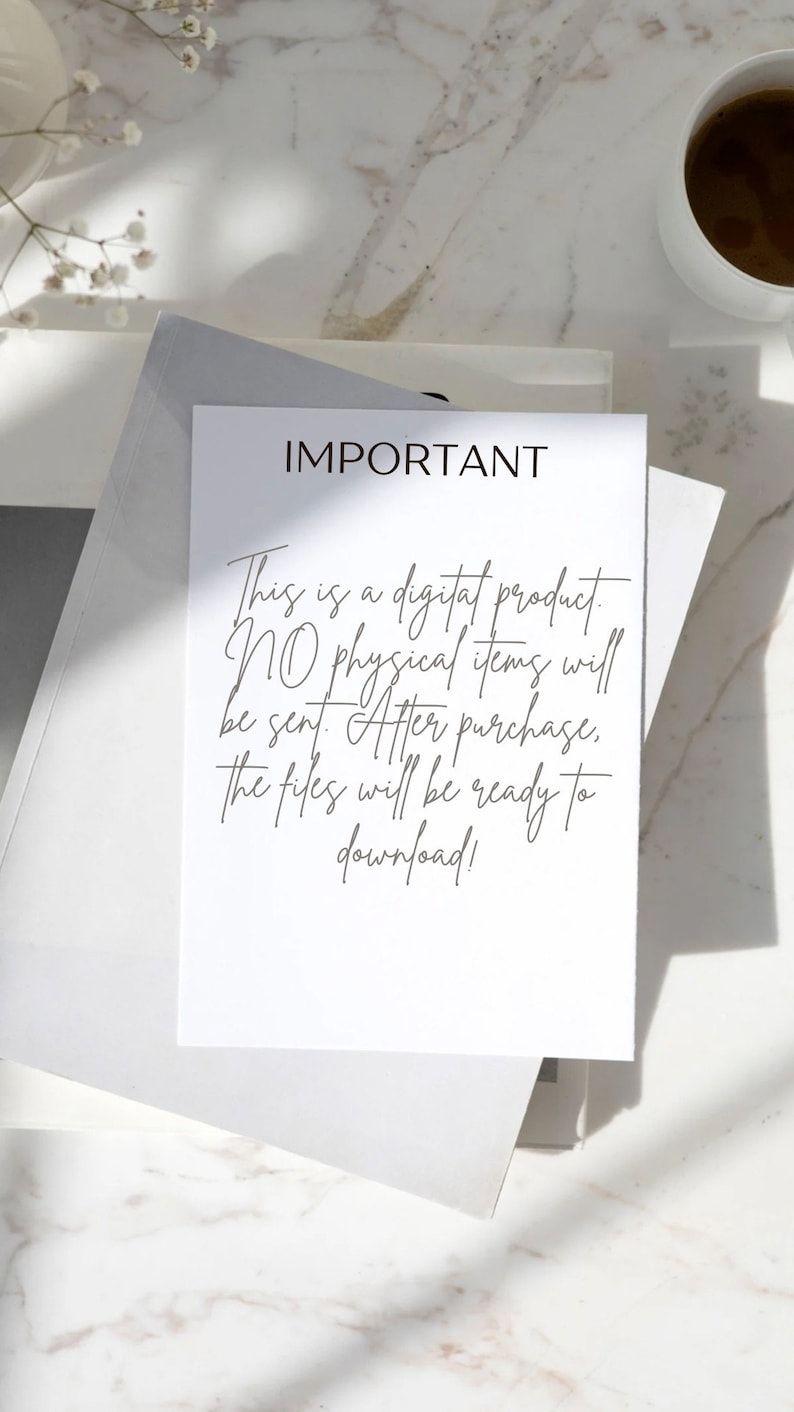 IMPORTANT
This is a digital product.
NO physical items will
be sent. After purchase,
the files will be ready to
download!